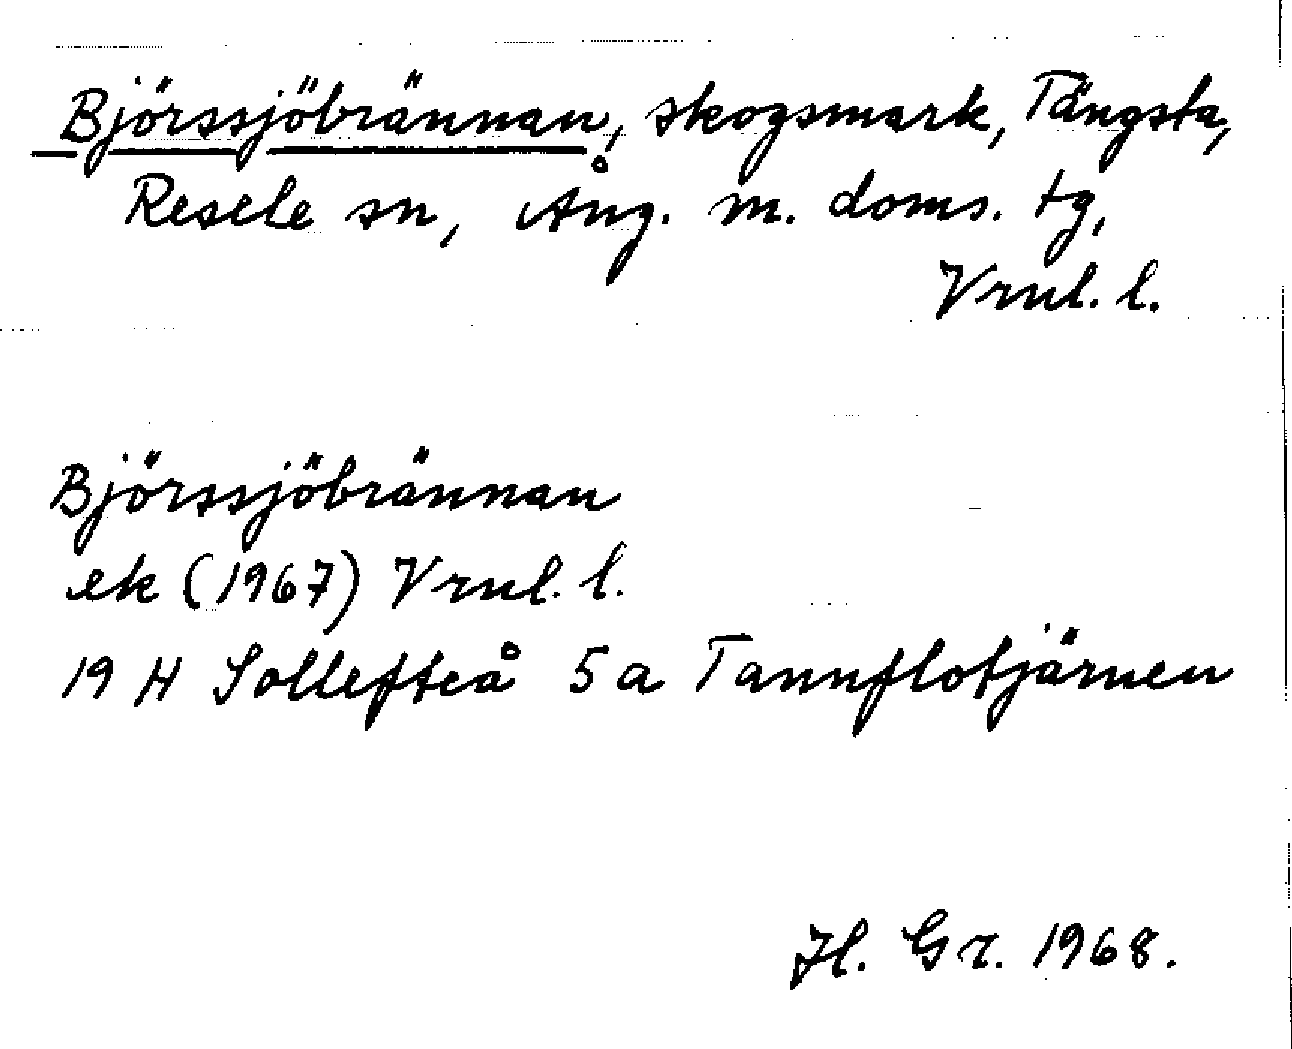 Björssjöbrännan, skogsmark, Tängsta,
Resele sn, Ång. m. doms. tg,
Vrnl. l.
Björssjöbrännan
ek (1967) Vrnl. l.
19 H Sollefteå 5a Tannflotjärnen
Hl. Gr. 1968.